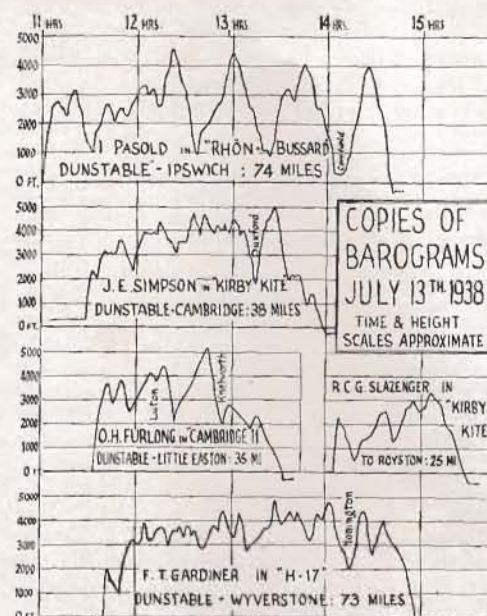 11 HRS 12 HRS 13 HRS 14 HRS 15 HRS
5000
4000
3000
2000
1000
0 FT.
I PASOLD IN "RHÖN-BUSSARD"
DUNSTABLE - IPSWICH : 74 MILES
5000
4000
3000
2000
1000
0 FT.
Duxford
J.E. SIMPSON IN "KIRBY KITE"
DUNSTABLE-CAMBRIDGE: 38 MILES
COPIES OF
BAROGRAMS
JULY 13TH. 1938
TIME & HEIGHT
SCALES APPROXIMATE
5000
4000
3000
2000
1000
0 FT
Luton
Knebworth
O.H. FURLONG IN "CAMBRIDGE II
DUNSTABLE - LITTLE EASTON: 35 MI
R C G. SLAZENGER IN
"KIRBY
KITE"
TO ROYSTON: 25 MI
5000
4000
3000
2000
1000
0 FT.
F. T. GARDINER IN "H-17"
DUNSTABLE - WYVERSTONE: 73 MILES